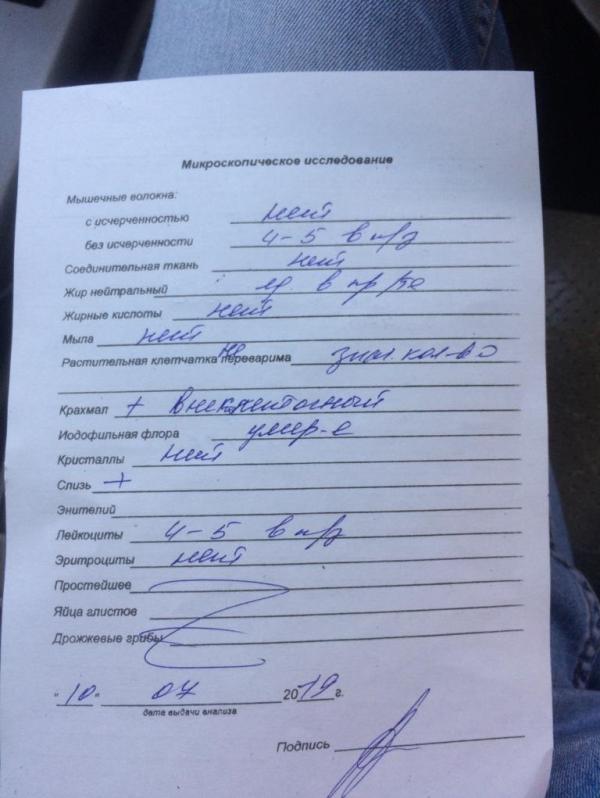 Микроскопическое исследование
Мышечные волокна:
с исчерченностью нет
без исчерченности 4-5 в п/з
Соединительная ткань нет
Жир нейтральный ед в пр/те
Жирные кислоты нет
Мыла нет
Растительная клетчатка не переварима знач. кол-во
Крахмал + внеклеточный
Иодофильная флора умер-е
Кристаллы нет
Слизь +
Энителий
Лейкоциты 4-5 в п/з
Эритроциты нет
Простейшее
Яйца глистов
Дрожжевые грибы
"10" 07 2019 г.
дата выдачи анализа
Подпись